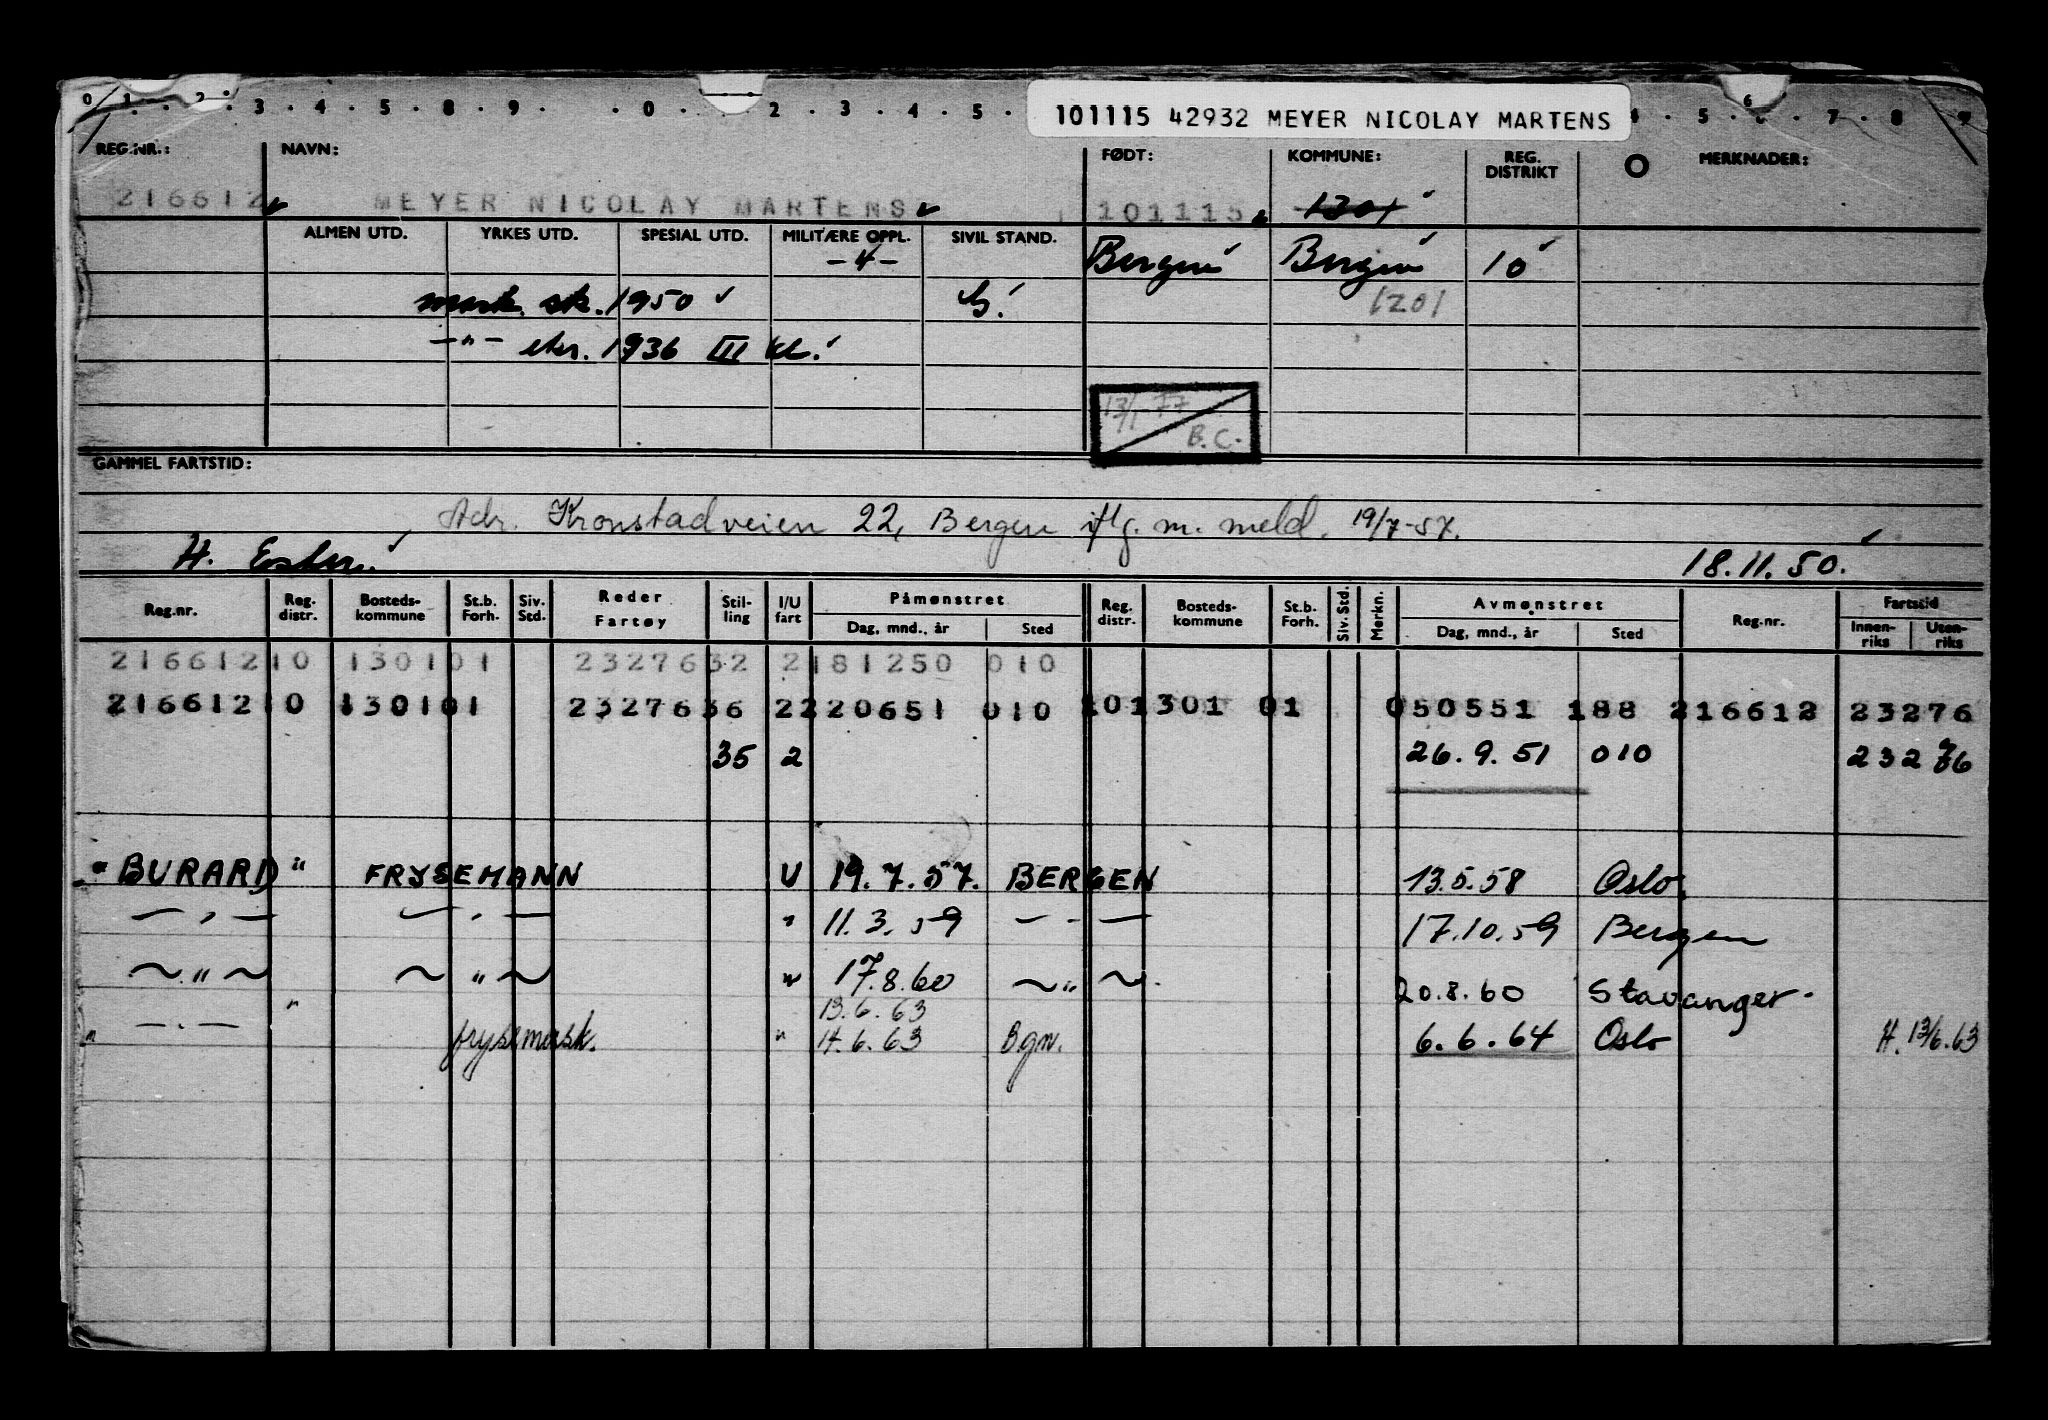 0 1 . . 2 . 3 . 4 . 5 . 8 . 9 . . 0 . . 2 . 3 . 4 . 5 . 101115 42932 MEYER NICOLAY MARTENS . 5 . 6 . 7 . 8 . 9
REG.NR.: NAVN: FØDT: KOMMUNE: REG. DISTRIKT O MERKNADER:
216612 MEYER NICOLAY MARTENS 101115 1301
ALMEN UTD. YRKES UTD. SPESIAL UTD. MILITÆRE OPPL. SIVIL STAND. Bergen Bergen 10
-4-
mask. sk. 1950 G. 1201
-"- 1936 III kl.
13/1-77
B.C.
GAMMEL FARTSTID:
Adr. Kronstadveien 22, Bergen iflg. m. meld. 19/7-57.
H. 18.11.50.
Reg.nr. Reg. distr. Bosteds- kommune St.b. Forh. Siv. Std. Reder Fartøy Stil- ling I/U fart Påmønstret Reg. distr. Bosteds- kommune St.b. Forh. Siv. Std. Merkn. Avmønstret Reg.nr. Fartstid
Dag, mnd., år Sted Dag, mnd., år Sted Innen- riks Uten- riks
216612 10 1301 01 23276 32 2 181250 010
216612 10 1301 01 23276 36 2 220651 010 10 1301 01 050551 188 216612 23276
35 2 26.9.51 010 23276
"BURARD" FRYSEMANN U 19.7.57. BERGEN 13.5.58 Oslo.
— " — — " — " 11.3.59 — " — 17.10.59 Bergen
~ " ~ ~ " ~ " 17.8.60 ~ " ~. 20.8.60 Stavanger.
13.6.63
" — " — " frysemask. " 14.6.63 Bgn. 6.6.64 Oslo H. 13/6.63